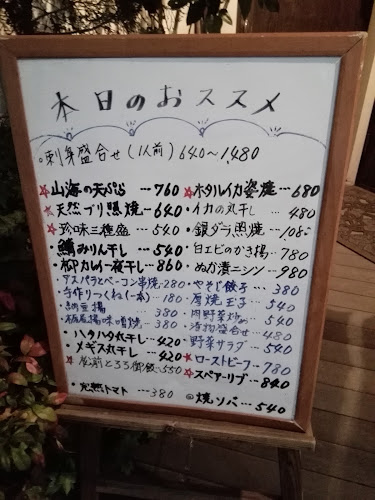 本日のおススメ
・刺身盛合せ(1人前) 640〜1,480
☆山海の天ぷら … 760
☆天然ブリ照焼 … 640
☆珍味三種盛 … 540
・鯛みりん干し … 540
・柳カレイ一夜干し … 860
アスパラとベーコン串焼 280
・手作りつくね(一本) 180
・納豆揚 380
・栃尾揚味噌焼 380
・ハタハタ丸干し … 420
・メギス丸干し … 420
☆松前とろろ御飯 … 550
・完熟トマト … 380
☆ホタルイカ姿焼 … 680
・イカの丸干し … 480
・銀ダラ照焼 … 1080
・白エビのかき揚 … 780
・ぬか漬ニシン … 980
・やそじ餃子 … 380
・厚焼玉子 540
・肉野菜炒め 540
・漬物盛合せ 480
・野菜サラダ 540
☆ローストビーフ … 780
☆スペアーリブ … 840
◎焼ソバ … 540